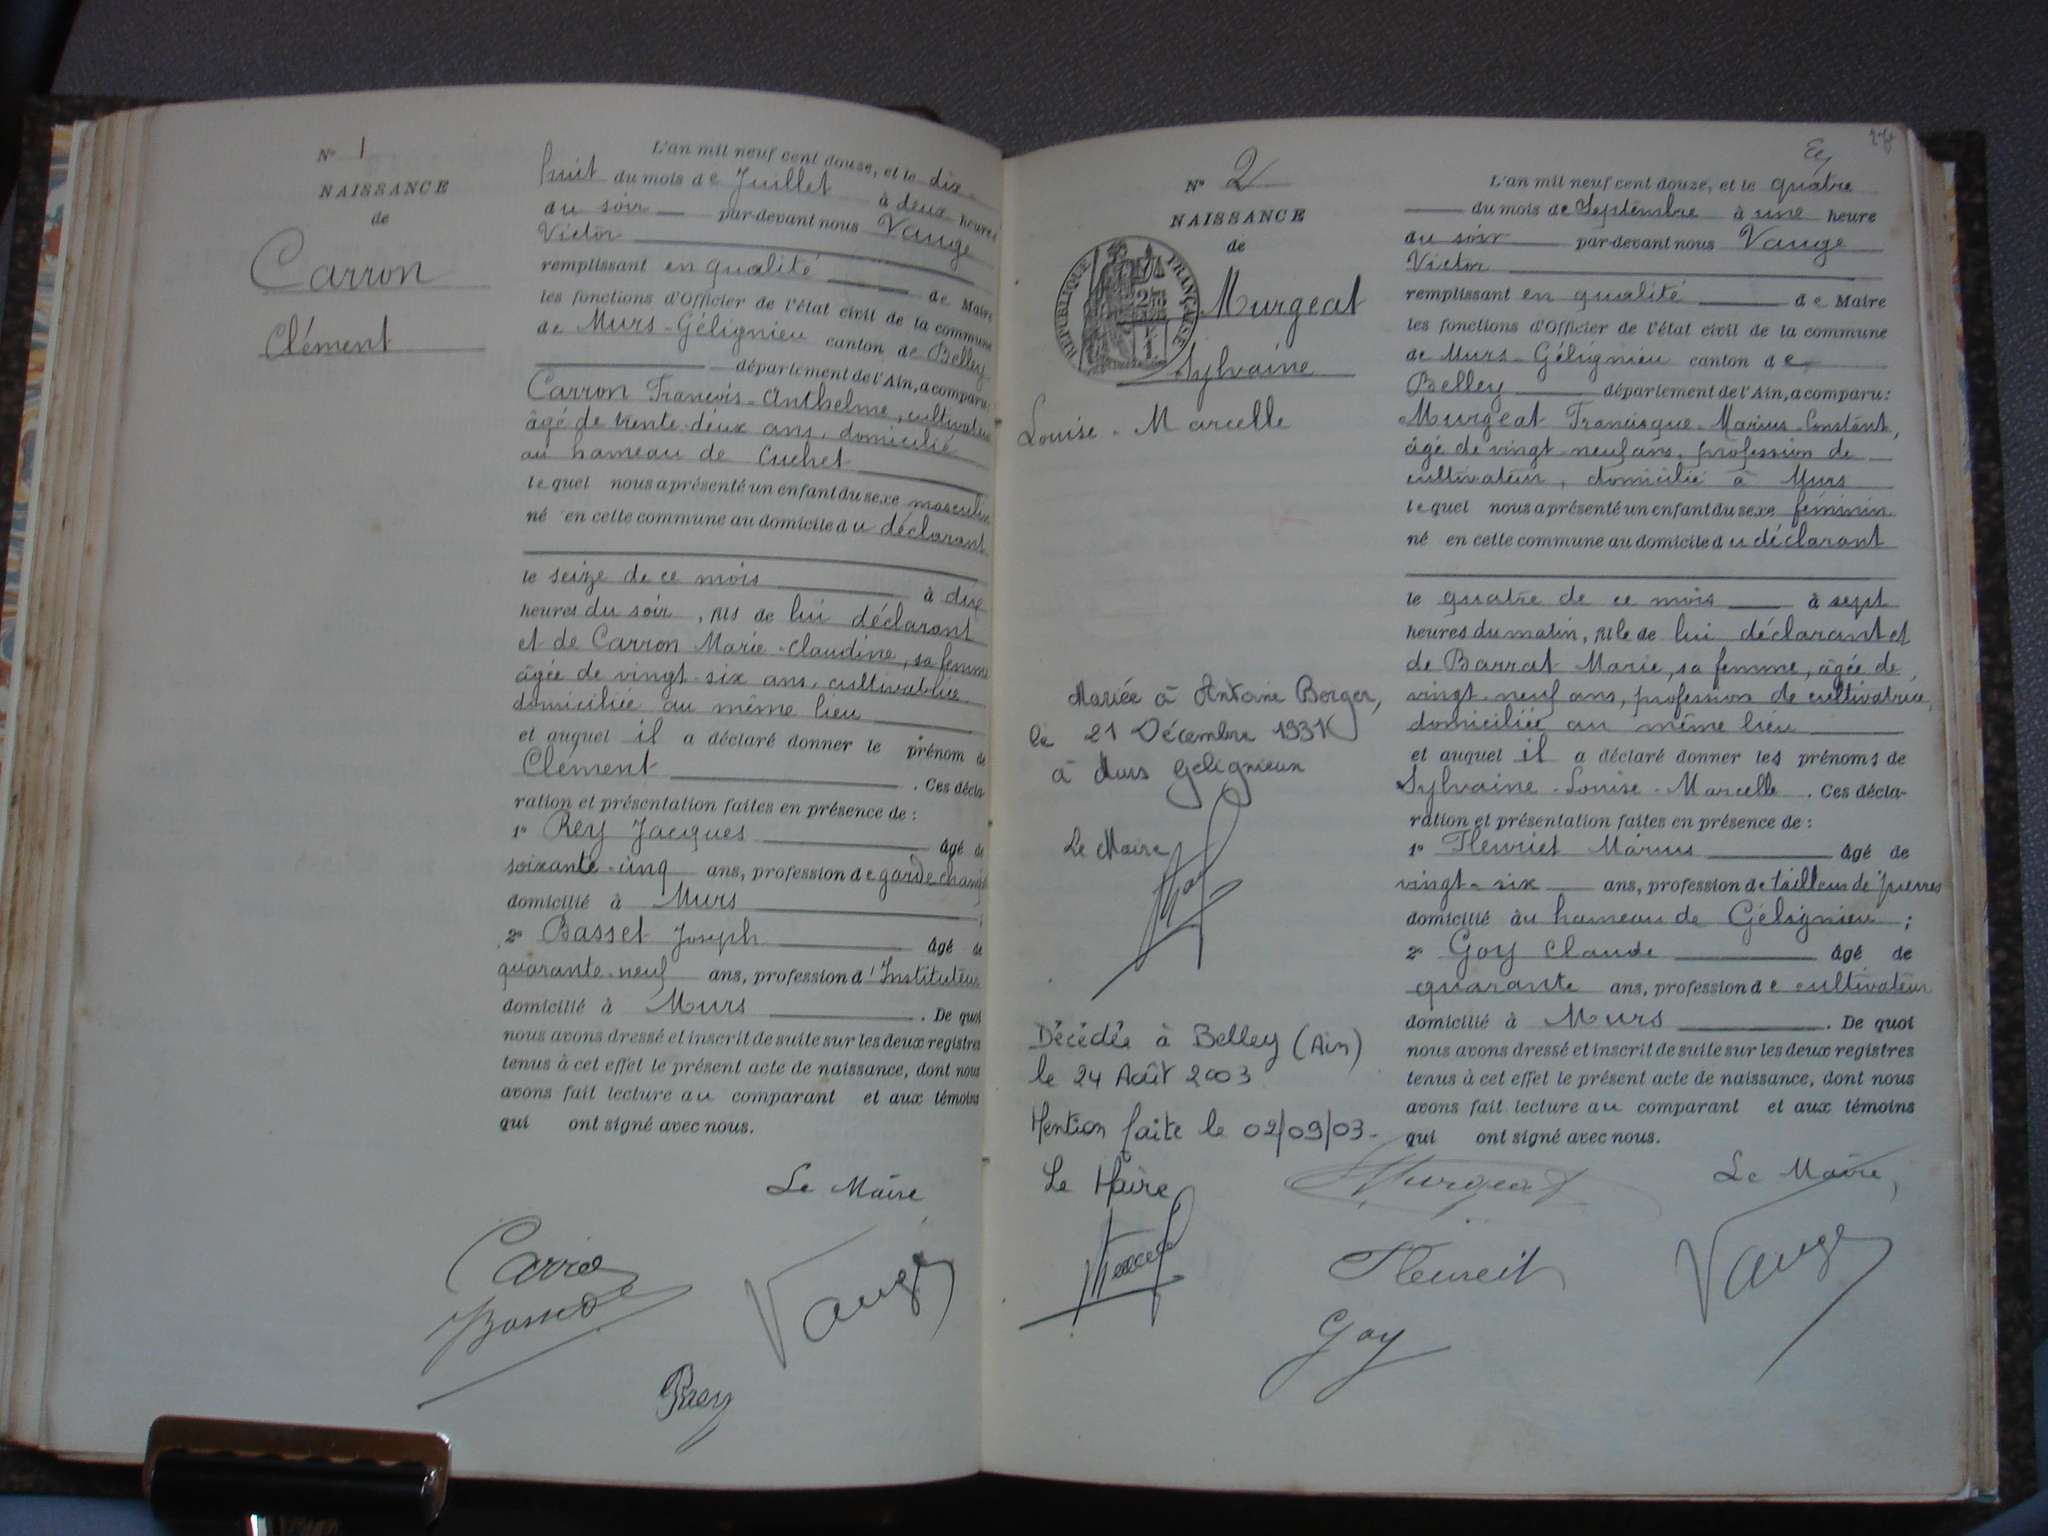 N° 1
NAISSANCE
de
Carron
Clément
L'an mil neuf cent douze, et le dix-
huit du mois de Juillet à deux heures
du soir par-devant nous Vauge
Victor
remplissant en qualité de Maire
les fonctions d'Officier de l'état civil de la commune
de Murs-Gélignieu canton de Belley
département de l'Ain, a comparu:
Carron François-Anthelme, cultivateur
âgé de trente-deux ans, domicilié
au hameau de Cuchet
lequel nous a présenté un enfant du sexe masculin
né en cette commune au domicile du déclarant
le seize de ce mois à dix
heures du soir, fils de lui déclarant
et de Carron Marie-Claudine, sa femme
âgée de vingt-six ans, cultivatrice
domiciliée au même lieu
et auquel il a déclaré donner le prénom de
Clément . Ces décla-
ration et présentation faites en présence de :
1° Rey Jacques âgé de
soixante-cinq ans, profession de garde champ
domicilié à Murs ;
2° Basset Joseph âgé de
quarante-neuf ans, profession d'Instituteur
domicilié à Murs . De quoi
nous avons dressé et inscrit de suite sur les deux registres
tenus à cet effet le présent acte de naissance, dont nous
avons fait lecture au comparant et aux témoins
qui ont signé avec nous.
Le Maire
Vauge
Rey
N° 2
NAISSANCE
de
RÉPUBLIQUE FRANÇAISE
Murgeat
Sylvaine
Louise-Marcelle
Mariée à Antoine Borger,
le 21 Décembre 1931
à Murs Gelignieux
Le Maire
Décédée à Belley (Ain)
le 24 Août 2003
Mention faite le 02/09/03-
Le Maire
L'an mil neuf cent douze, et le quatre
du mois de Septembre à une heure
du soir par-devant nous Vauge
Victor
remplissant en qualité de Maire
les fonctions d'Officier de l'état civil de la commune
de Murs-Gélignieu canton de
Belley département de l'Ain, a comparu:
Murgeat Francisque-Marius-Constant,
âgé de vingt-neuf ans, profession de
cultivateur, domicilié à Murs
lequel nous a présenté un enfant du sexe féminin
né en cette commune au domicile du déclarant
le quatre de ce mois à sept
heures du matin, fille de lui déclarant et
de Barrat Marie, sa femme, âgée de
vingt-neuf ans, profession de cultivatrice,
domiciliée au même lieu
et auquel il a déclaré donner les prénoms de
Sylvaine-Louise-Marcelle . Ces décla-
ration et présentation faites en présence de :
1° Fleuriet Marius âgé de
vingt-six ans, profession de tailleur de pierres
domicilié au hameau de Gélignieu ;
2° Goy Claude âgé de
quarante ans, profession de cultivateur
domicilié à Murs . De quoi
nous avons dressé et inscrit de suite sur les deux registres
tenus à cet effet le présent acte de naissance, dont nous
avons fait lecture au comparant et aux témoins
qui ont signé avec nous.
Murgeat Le Maire,
Vauge
Goy